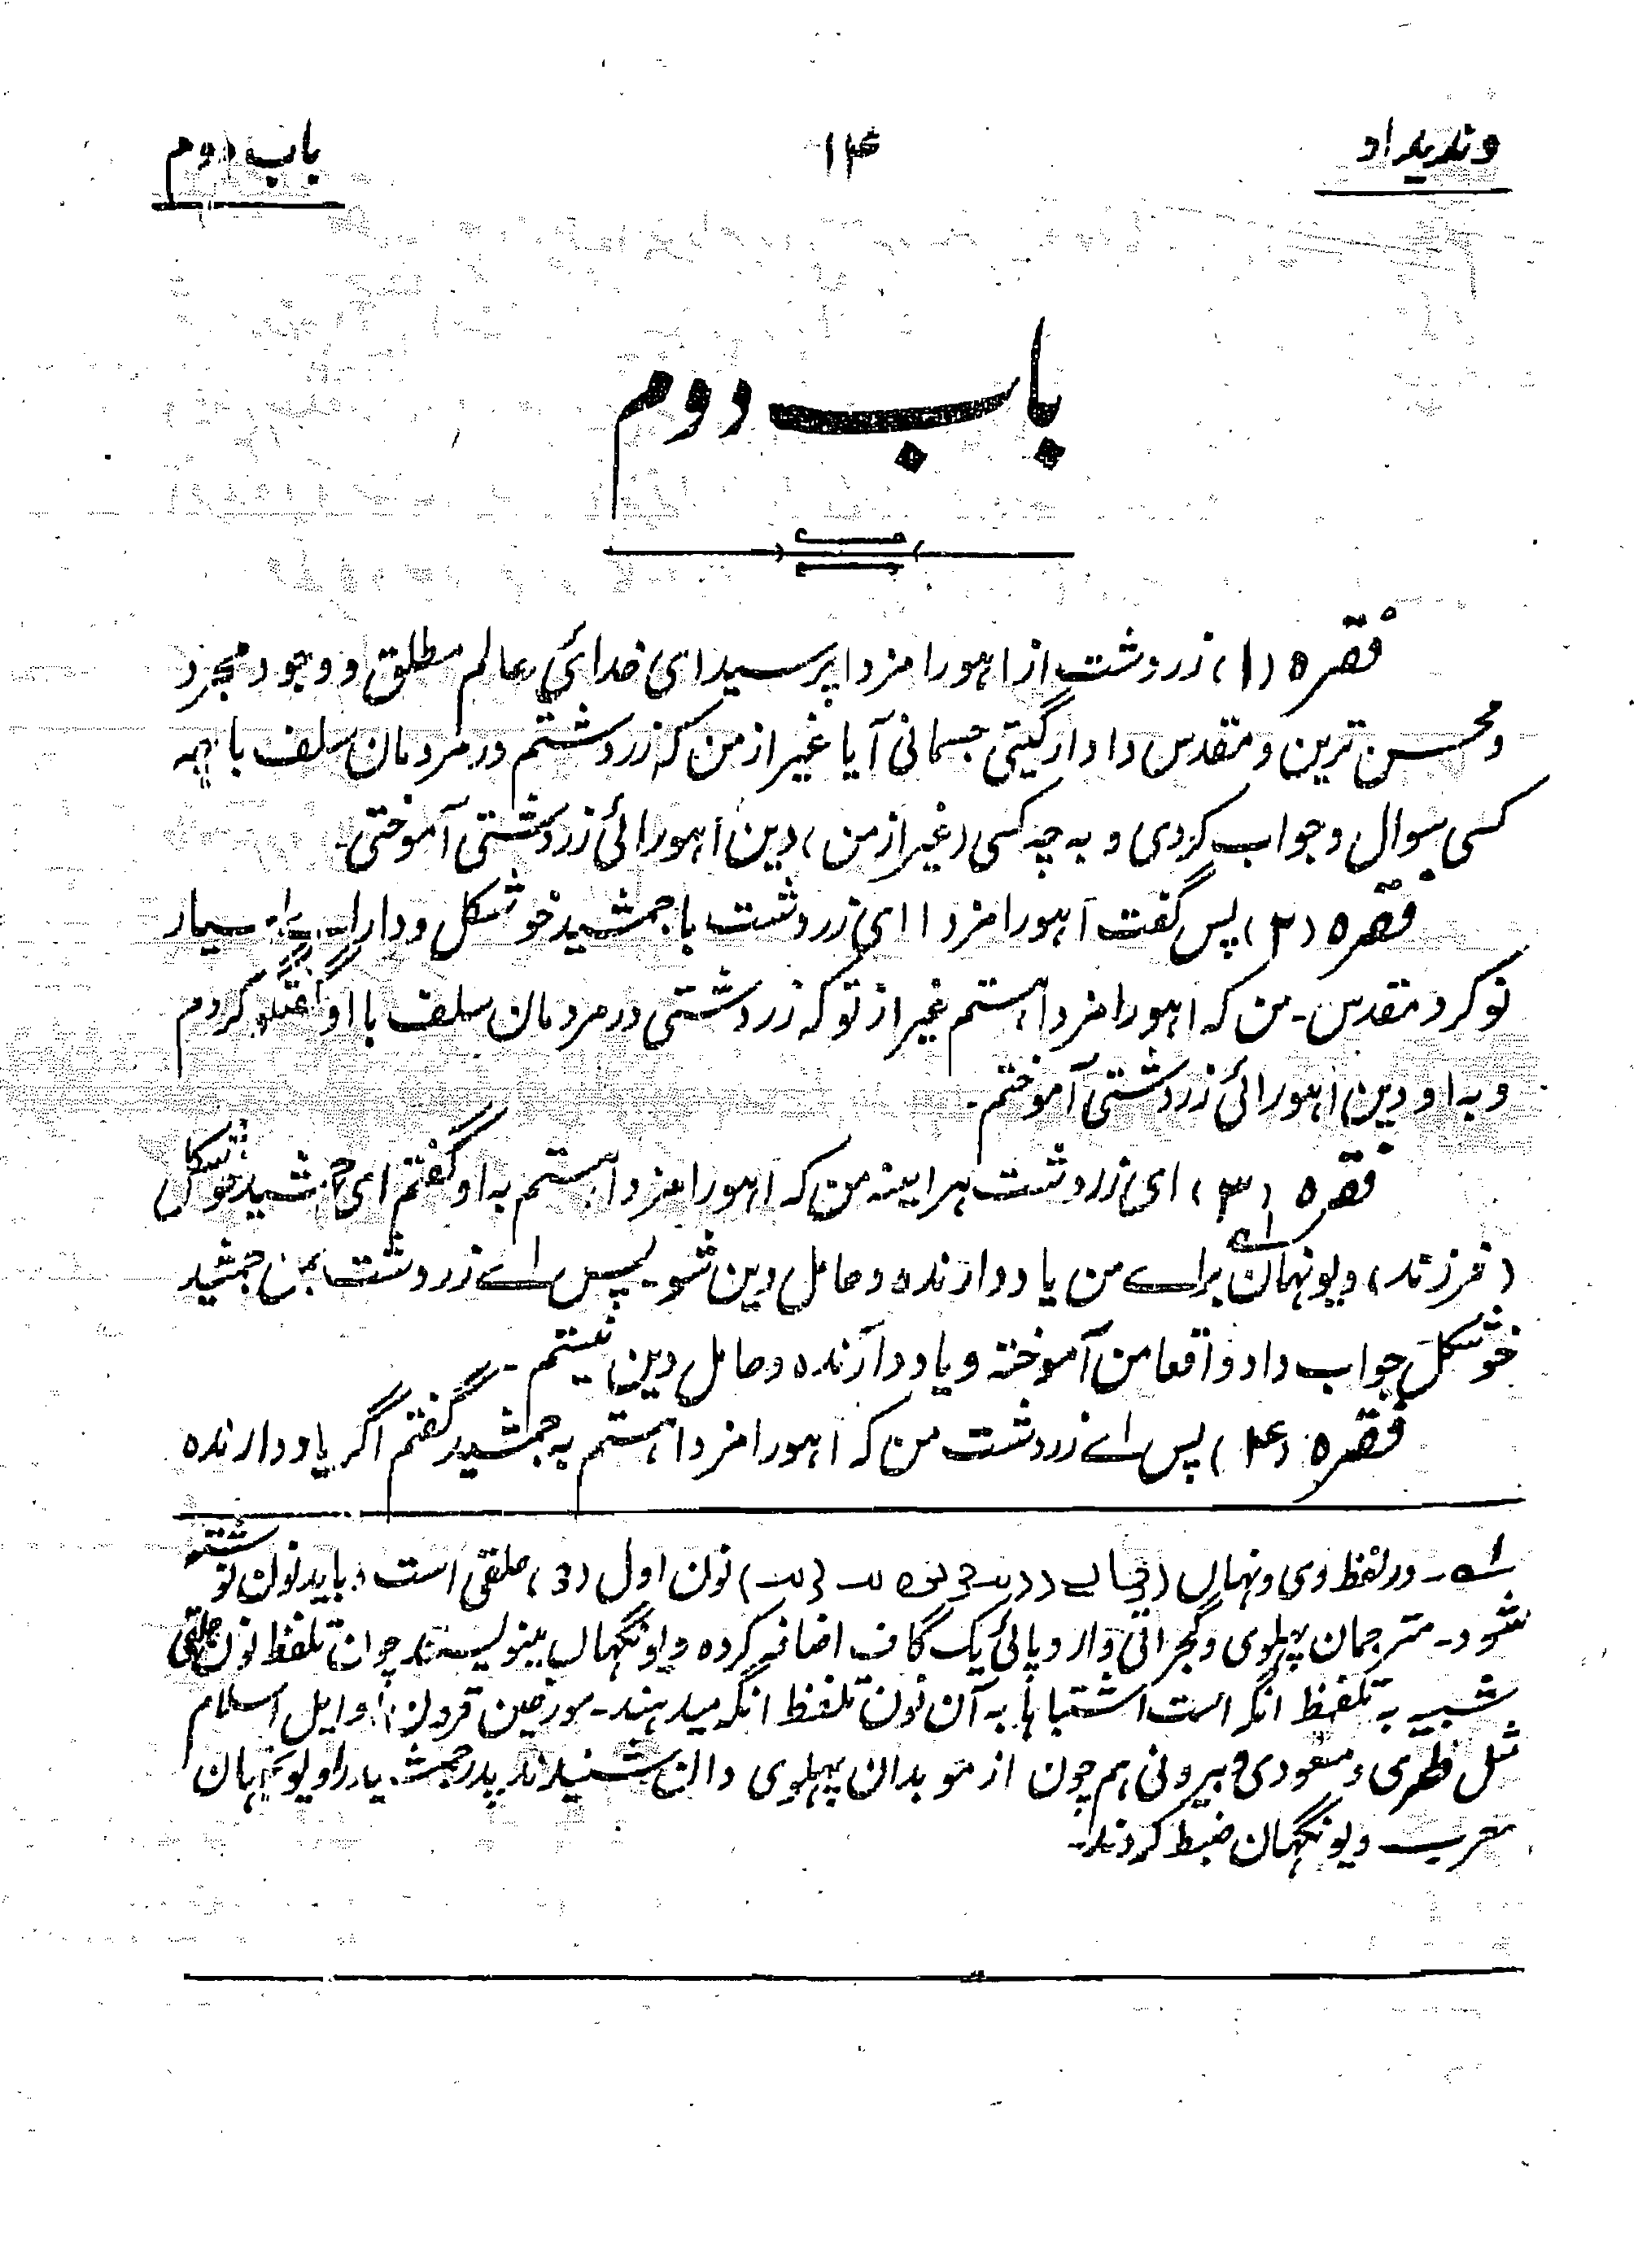 وندیداد
۱۴
باب دوم
باب دوم
فقره (۱) زردشت از اهورا مزدا پرسید ای خدائی عالم مطلق و وجود مجرد
و محسن ترین و مقدس دادار گیتی جسمانی آیا غیر از من که زردشتم در مردمان سلف با چه
کسی سوال و جواب کردی و به چه کسی (غیر از من) دین اهورائی زردشتی آموختی۔
فقره (۲) پس گفت اهورا مزدا ای زردشت با جمشید خوشکل و دارای سیار
نوکر و مقدس۔ من که اهورا مزدا هستم غیر از تو که زردشتی در مردمان سلف با او گفتگو کردم
و به او دین اهورائی زردشتی آموختم۔
فقره (۳) ای زردشت هراینه من که اهورا مزدا هستم به او گفتم ای جمشید خوشکل
(فرزند) ویونهان ۱؎ براے من یاد دارنده و حامل دین شو۔ پس اے زردشت بمن جمشید
خوشکل جواب داد واقعا من آموخته و یاد دارنده و حامل دین نیستم۔
فقره (۴) پس اے زردشت من که اهورا مزدا هستم به جمشید گفتم اگر یاد دارنده
۱؎۔ در لفظ وی ونهان نون اول (3) حلقی است و باید نون نوشته
شود۔ مترجمان پهلوی و گجراتی و اروپائی یک گاف اضافه کرده ویونگهان مینویسند چون تلفظ نون حلقی
شبیه به تلفظ انگ است اشتباها به آن نون تلفظ انگ میدهند۔ مورخین قرون اوایل اسلام
مثل طبری و مسعودی و بیرونی هم چون از موبدان پهلوی دان شنیدند پدر جمشید را ویونجهان
معرب ویونگهان ضبط کردند۔